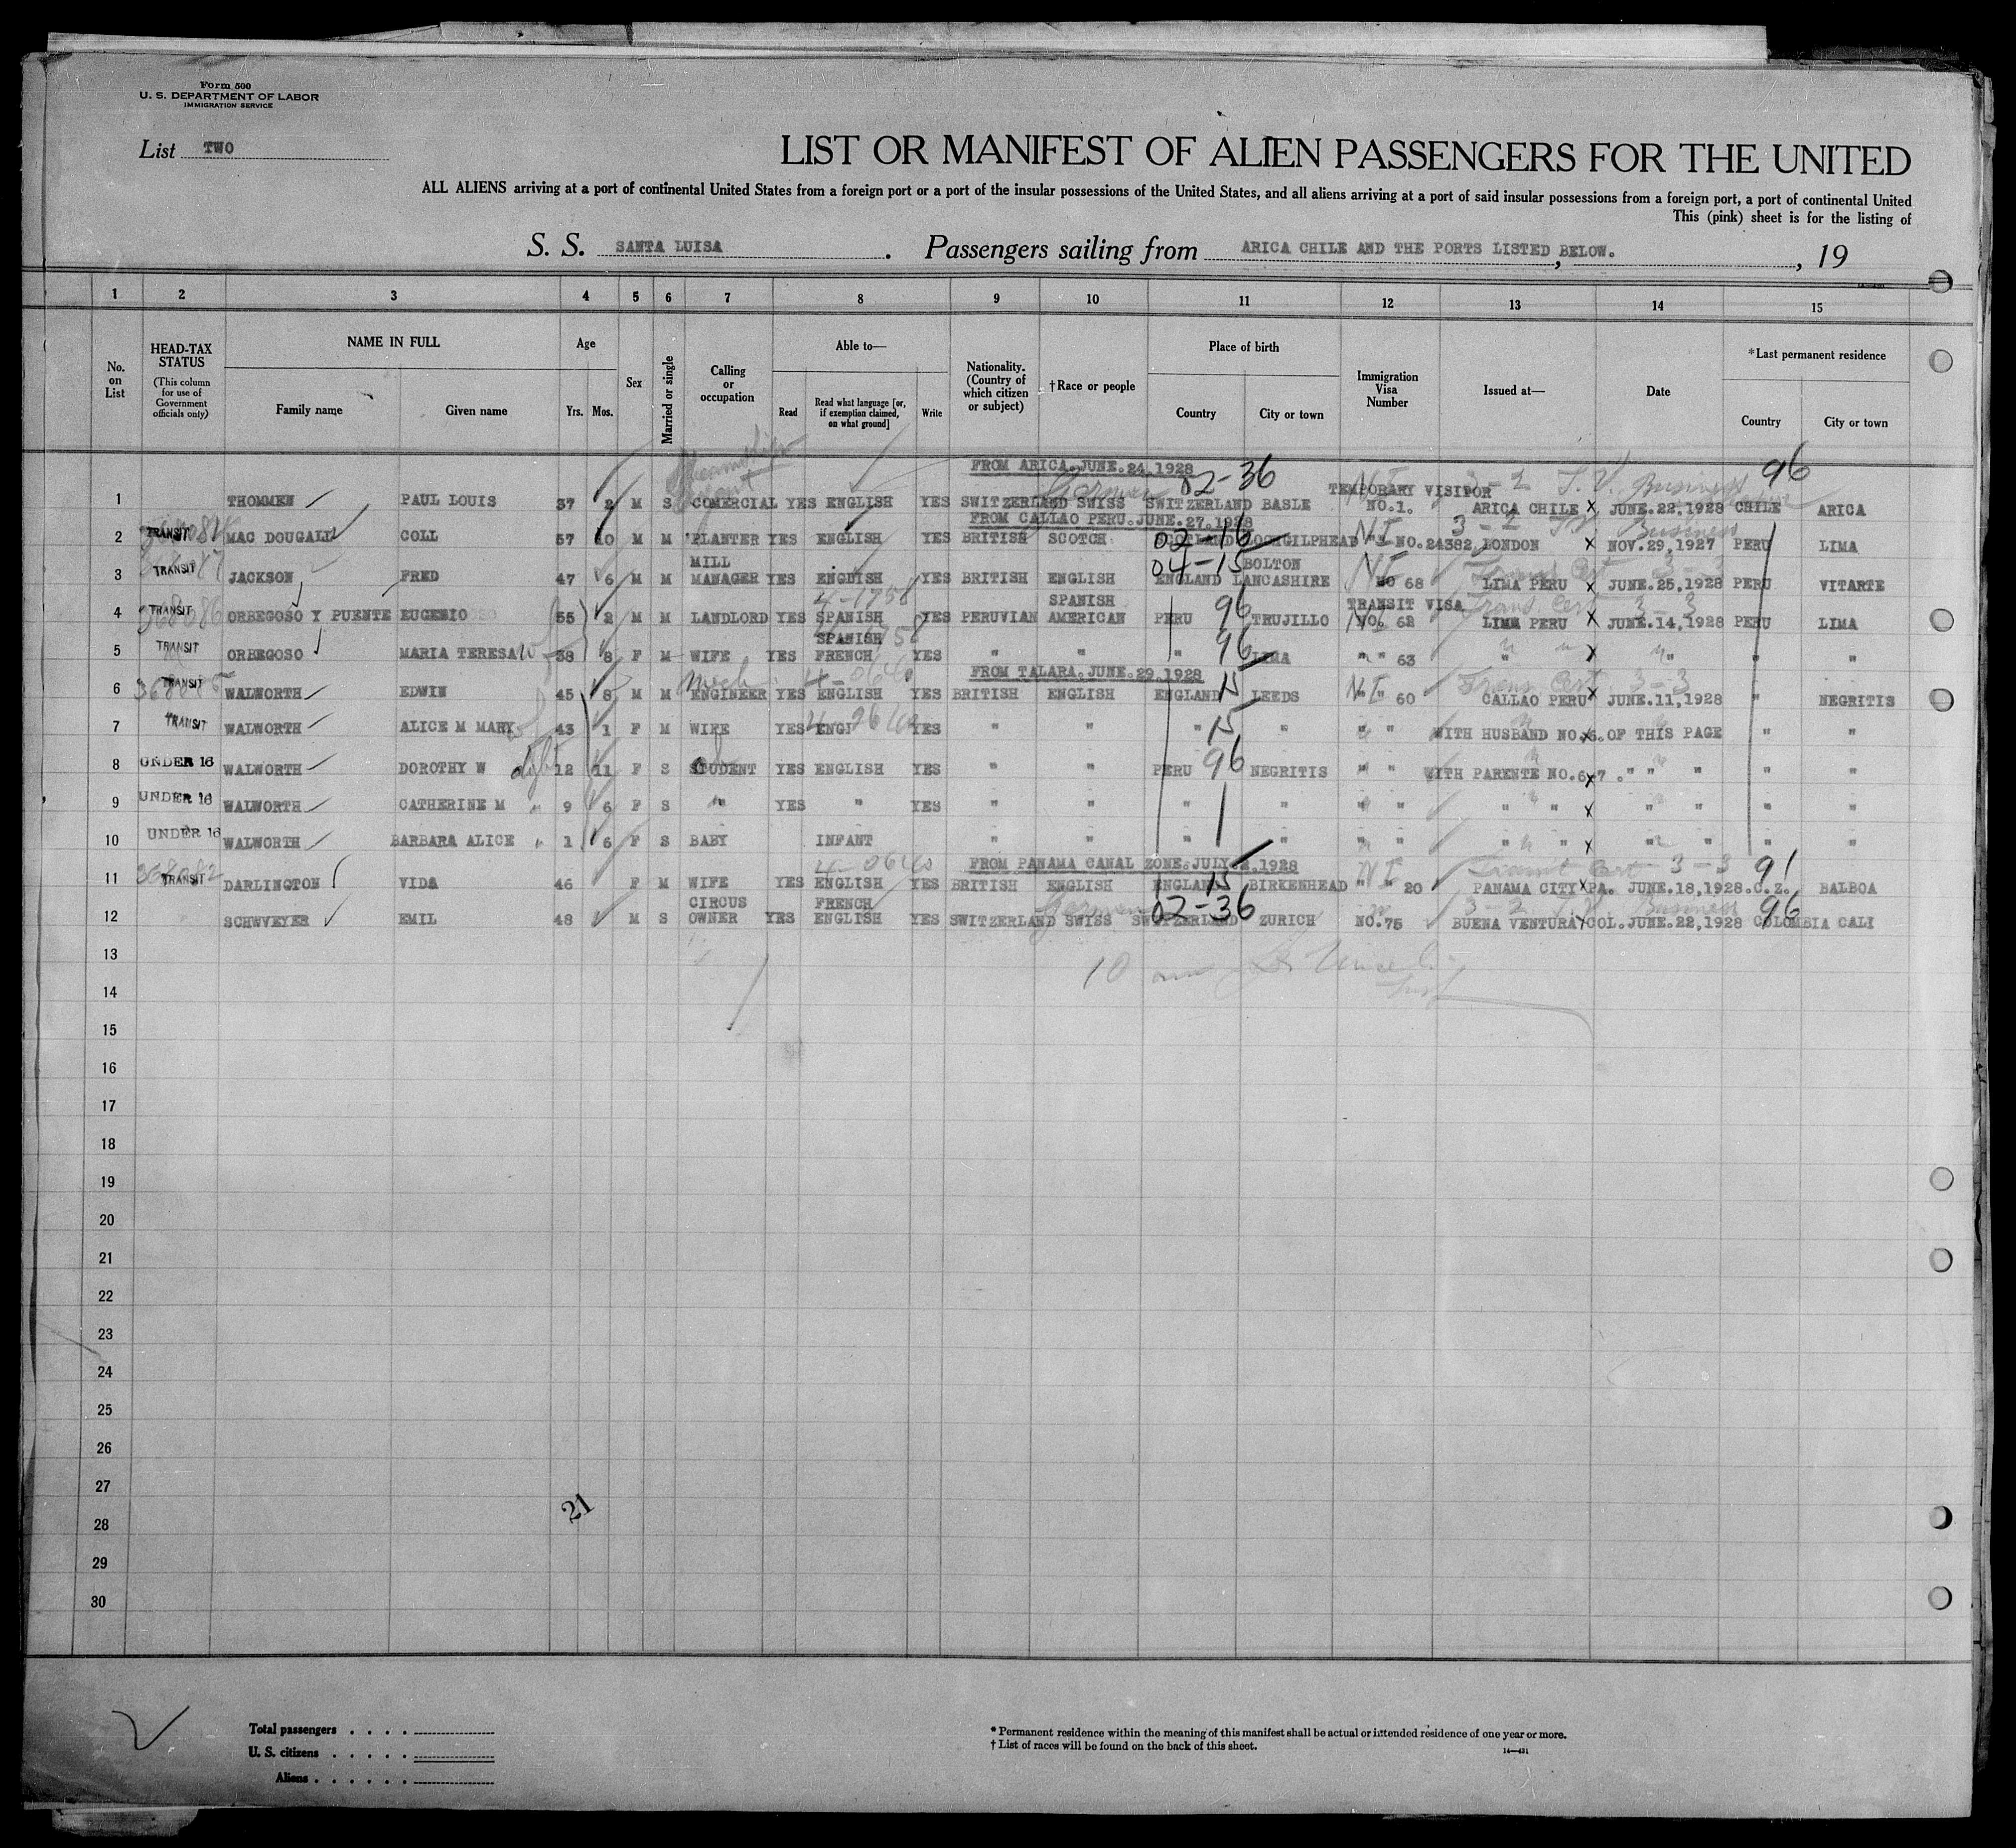 Form 500
U. S. DEPARTMENT OF LABOR
IMMIGRATION SERVICE
List TWO
LIST OR MANIFEST OF ALIEN PASSENGERS FOR THE UNITED
ALL ALIENS arriving at a port of continental United States from a foreign port or a port of the insular possessions of the United States, and all aliens arriving at a port of said insular possessions from a foreign port, a port of continental United
This (pink) sheet is for the listing of
S. S. SANTA LUISA. Passengers sailing from ARICA CHILE AND THE PORTS LISTED BELOW. , , 19
1 2 3 4 5 6 7 8 9 10 11 12 13 14 15
No. on List
HEAD-TAX STATUS
(This column for use of Government officials only)
NAME IN FULL
Family name Given name
Age
Yrs. Mos.
Sex
Married or single
Calling or occupation
Able to—
Read Read what language [or, if exemption claimed, on what ground] Write
Nationality. (Country of which citizen or subject)
†Race or people
Place of birth
Country City or town
Immigration Visa Number
Issued at—
Date
*Last permanent residence
Country City or town
FROM ARICA.JUNE.24.1928
02-36 96
TEMPORARY VISITOR 3-2 T.V. Business
1 THOMMEN PAUL LOUIS 37 2 M S COMERCIAL YES ENGLISH YES SWITZERLAND SWISS SWITZERLAND BASLE NO.1. ARICA CHILE JUNE.22,1928 CHILE ARICA
FROM CALLAO PERU.JUNE.27.1928
NI 3-2 Business
2 TRANSIT MAC DOUGALL COLL 57 10 M M PLANTER YES ENGLISH YES BRITISH SCOTCH 02-16 SCOTLAND LOCHGILPHEAD NO.24382 LONDON NOV.29,1927 PERU LIMA
MILL 04-15 BOLTON
3 TRANSIT JACKSON FRED 47 6 M M MANAGER YES ENGLISH YES BRITISH ENGLISH ENGLAND LANCASHIRE NO 68 LIMA PERU JUNE.25,1928 PERU VITARTE
4-1758 SPANISH 96 TRANSIT VISA Trans. Cert 3-3
4 TRANSIT 368086 ORBEGOSO Y PUENTE EUGENIO 55 2 M M LANDLORD YES SPANISH YES PERUVIAN AMERICAN PERU TRUJILLO NO. 62 LIMA PERU JUNE.14,1928 PERU LIMA
SPANISH
5 TRANSIT ORBEGOSO MARIA TERESA 38 8 F M WIFE YES FRENCH YES " " " 96 LIMA " " 63 " " " " "
FROM TALARA.JUNE.29.1928
Mech. NI Trans Cert 3-3
6 TRANSIT 368085 WALWORTH EDWIN 45 8 M M ENGINEER YES ENGLISH YES BRITISH ENGLISH ENGLAND 15 LEEDS " " 60 CALLAO PERU JUNE.11,1928 " NEGRITIS
7 TRANSIT WALWORTH ALICE M MARY 43 1 F M WIFE YES ENGL YES " " " 15 " " " WITH HUSBAND NO.6.OF THIS PAGE " "
8 UNDER 16 WALWORTH DOROTHY W 12 11 F S STUDENT YES ENGLISH YES " " PERU 96 NEGRITIS " " WITH PARENTE NO.6x7 ." " " " "
9 UNDER 16 WALWORTH CATHERINE M " 9 6 F S " YES " YES " " " " " " " " " " " "
10 UNDER 16 WALWORTH BARBARA ALICE " 1 6 F S BABY INFANT " " " " " " " " " " " "
FROM PANAMA CANAL ZONE.JULY.2.1928
NI Cert 3-3 91
11 TRANSIT 368082 DARLINGTON VIDA 46 F M WIFE YES ENGLISH YES BRITISH ENGLISH ENGLAND 15 BIRKENHEAD " " 20 PANAMA CITY PA. JUNE.18,1928.C.Z. BALBOA
CIRCUS FRENCH 02-36 3-2 Business 96
12 SCHWVEYER EMIL 48 M S OWNER YES ENGLISH YES SWITZERLAND SWISS SWITZERLAND ZURICH NO.75 BUENA VENTURA COL.JUNE.22,1928 COLOMBIA CALI
13
10
14
15
16
17
18
19
20
21
22
23
24
25
26
27
21
28
29
30
Total passengers . . . .
U. S. citizens . . . . .
Aliens . . . . . .
* Permanent residence within the meaning of this manifest shall be actual or intended residence of one year or more.
† List of races will be found on the back of this sheet.
14—431